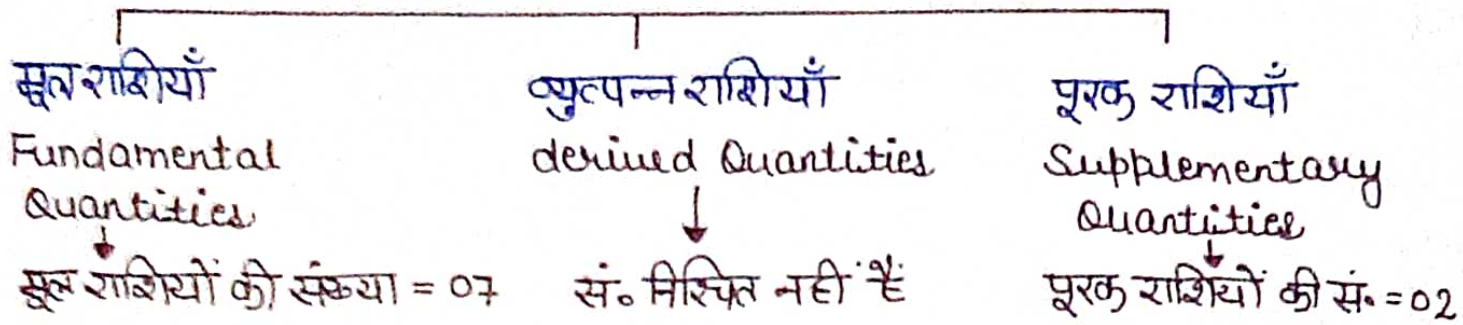 मूल राशियाँ
Fundamental
Quantities
मूल राशियों की संख्या = 07
व्युत्पन्न राशियाँ
derived Quantities
सं० निश्चित नहीं है
पूरक राशियाँ
Supplementary
Quantities
पूरक राशियों की सं० = 02